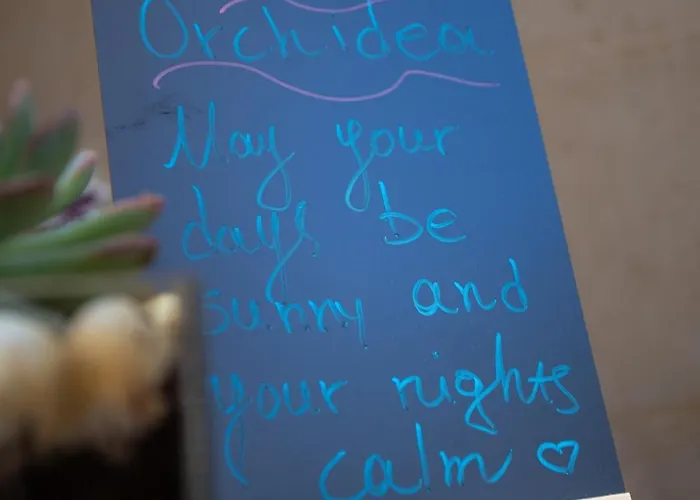 Orchidea
May your
days be
sunny and
your nights
calm ♡